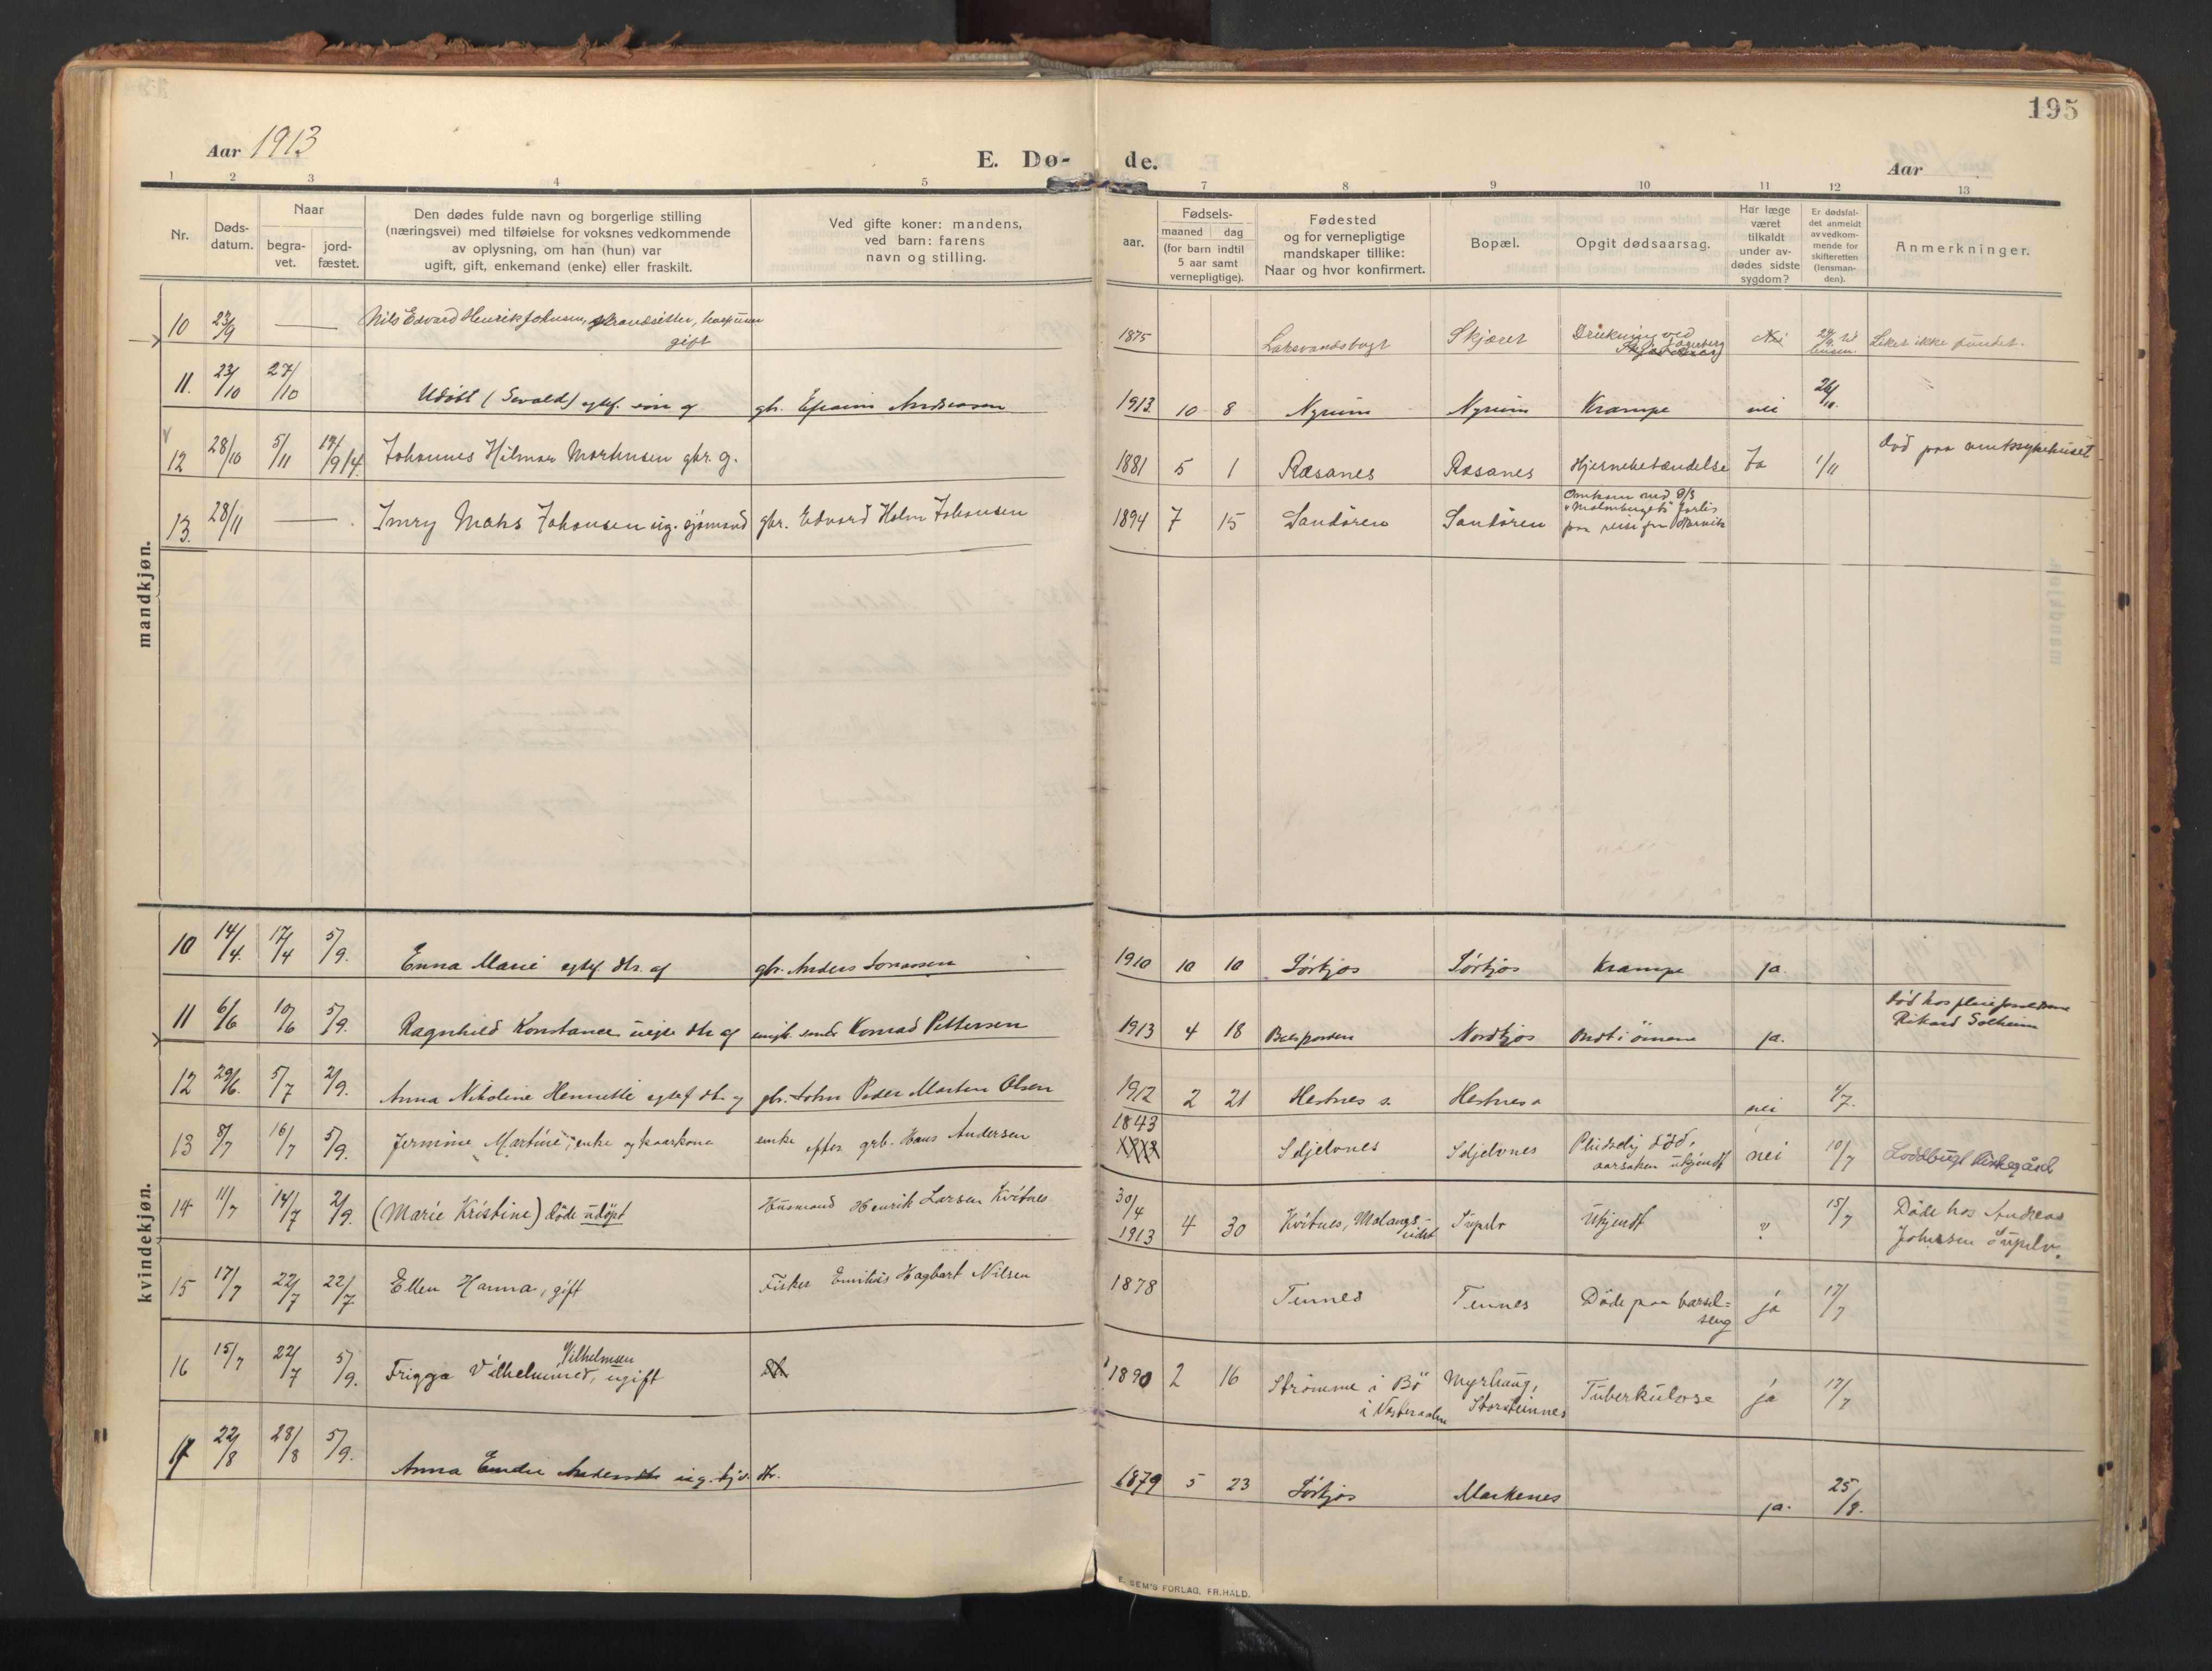 195
Aar 1913
E. Dø- de.
Aar
1 2 3 4 5 7 8 9 10 11 12 13
Nr.
Døds-
datum.
Naar
begra-
vet.
jord-
fæstet.
Den dødes fulde navn og borgerlige stilling
(næringsvei) med tilføielse for voksnes vedkommende
av oplysning, om han (hun) var
ugift, gift, enkemand (enke) eller fraskilt.
Ved gifte koner: mandens,
ved barn: farens
navn og stilling.
aar.
Fødsels-
maaned dag
(for barn indtil
5 aar samt
vernepligtige).
Fødested
og for vernepligtige
mandskaper tillike:
Naar og hvor konfirmert.
Bopæl.
Opgit dødsaarsag.
Har læge
været
tilkaldt
under av-
dødes sidste
sygdom?
Er dødsfal-
det anmeldt
av vedkom-
mende for
skifteretten
(lensman-
den).
Anmerkninger.
mandkjøn.
10 23/9 — Nils Edvard Henrik Johnsen, strandsitter,
gift
1875 Laksvandsbugt Skjæret Drukning ved
Nei 24/9 Liket ikke fundet.
11. 23/10 27/10 Udöbt (Sevald) egtef. sön af gbr. Efraim Andreasen 1913 10 8 Nyrúm Nyrúm Krampe nei 26/10.
12 28/10 5/11 14/9 14. Johannes Hilmar Mortensen gbr. g. 1881 5 1 Ræsanes Ræsanes Hjernebetændelse Ja 1/11 död paa amtssykehuset
13. 28/11 — Imry Maks Johansen ug. sjömand gbr. Edvard Holm Johansen 1894 7 15 Sandören Sandören Omkom med D/S
Malmberget's forlis
paa reise fra Narvik
kvindekjøn.
10 14/4. 17/4 5/9. Enna Marie egtef. dtr. af gbr. Anders Jonassen 1910 10 10 Sörkjos Sörkjos Krampe ja.
11 6/6 10/6 5/9. Ragnhild Konstance uegte dtr. af Konrad Pettersen 1913 4 18 Balsfjorden Nordkjos Ondt i örnene ja. död hos pleieforeldrene
Rikard Solheim
12 29/6. 5/7 2/9. Anna Nikoline Henriette egtef. dtr. af gbr. John Peder Morten Olsen 1912 2 21 Hestnes Hestnes nei 1/7.
13 8/7 16/7 5/9. Jermine Martine, enke og kaarkone enke efter grb. Hans Andersen 1843 Seljelvnes Seljelvnes Pludselig död.
aarsaken ukjendt nei 10/7 Loddbugt kirkegård
14 11/7 14/7 2/9. (Marie Kristine) döde udöpt Husmand Henrik Larsen Kvitnes 30/4
1913 4 30 Kvitnes, Malangs-
eidet Sirpelv Ukjendt ? 15/7 Döde hos Andreas
Johnsen
15 17/7 22/7 22/7 Ellen Hanna, gift Fisker Emilius Hagbart Nilsen 1878 Tennes Tennes Döde paa barsel=
seng ja 17/7
16 15/7 22/7 5/9. Vilhelmsen
Frigga , ugift 1890 2 16 Strömme i Bö
i Vesteraalen Myrhaug,
Storsteinnes Tuberkulose ja 17/7
17 22/8 28/8 5/9. Anna ug. dtr. 1879 5 23 Sörkjos Markenes ja. 25/8.
E. SEM'S FORLAG, FR.HALD.